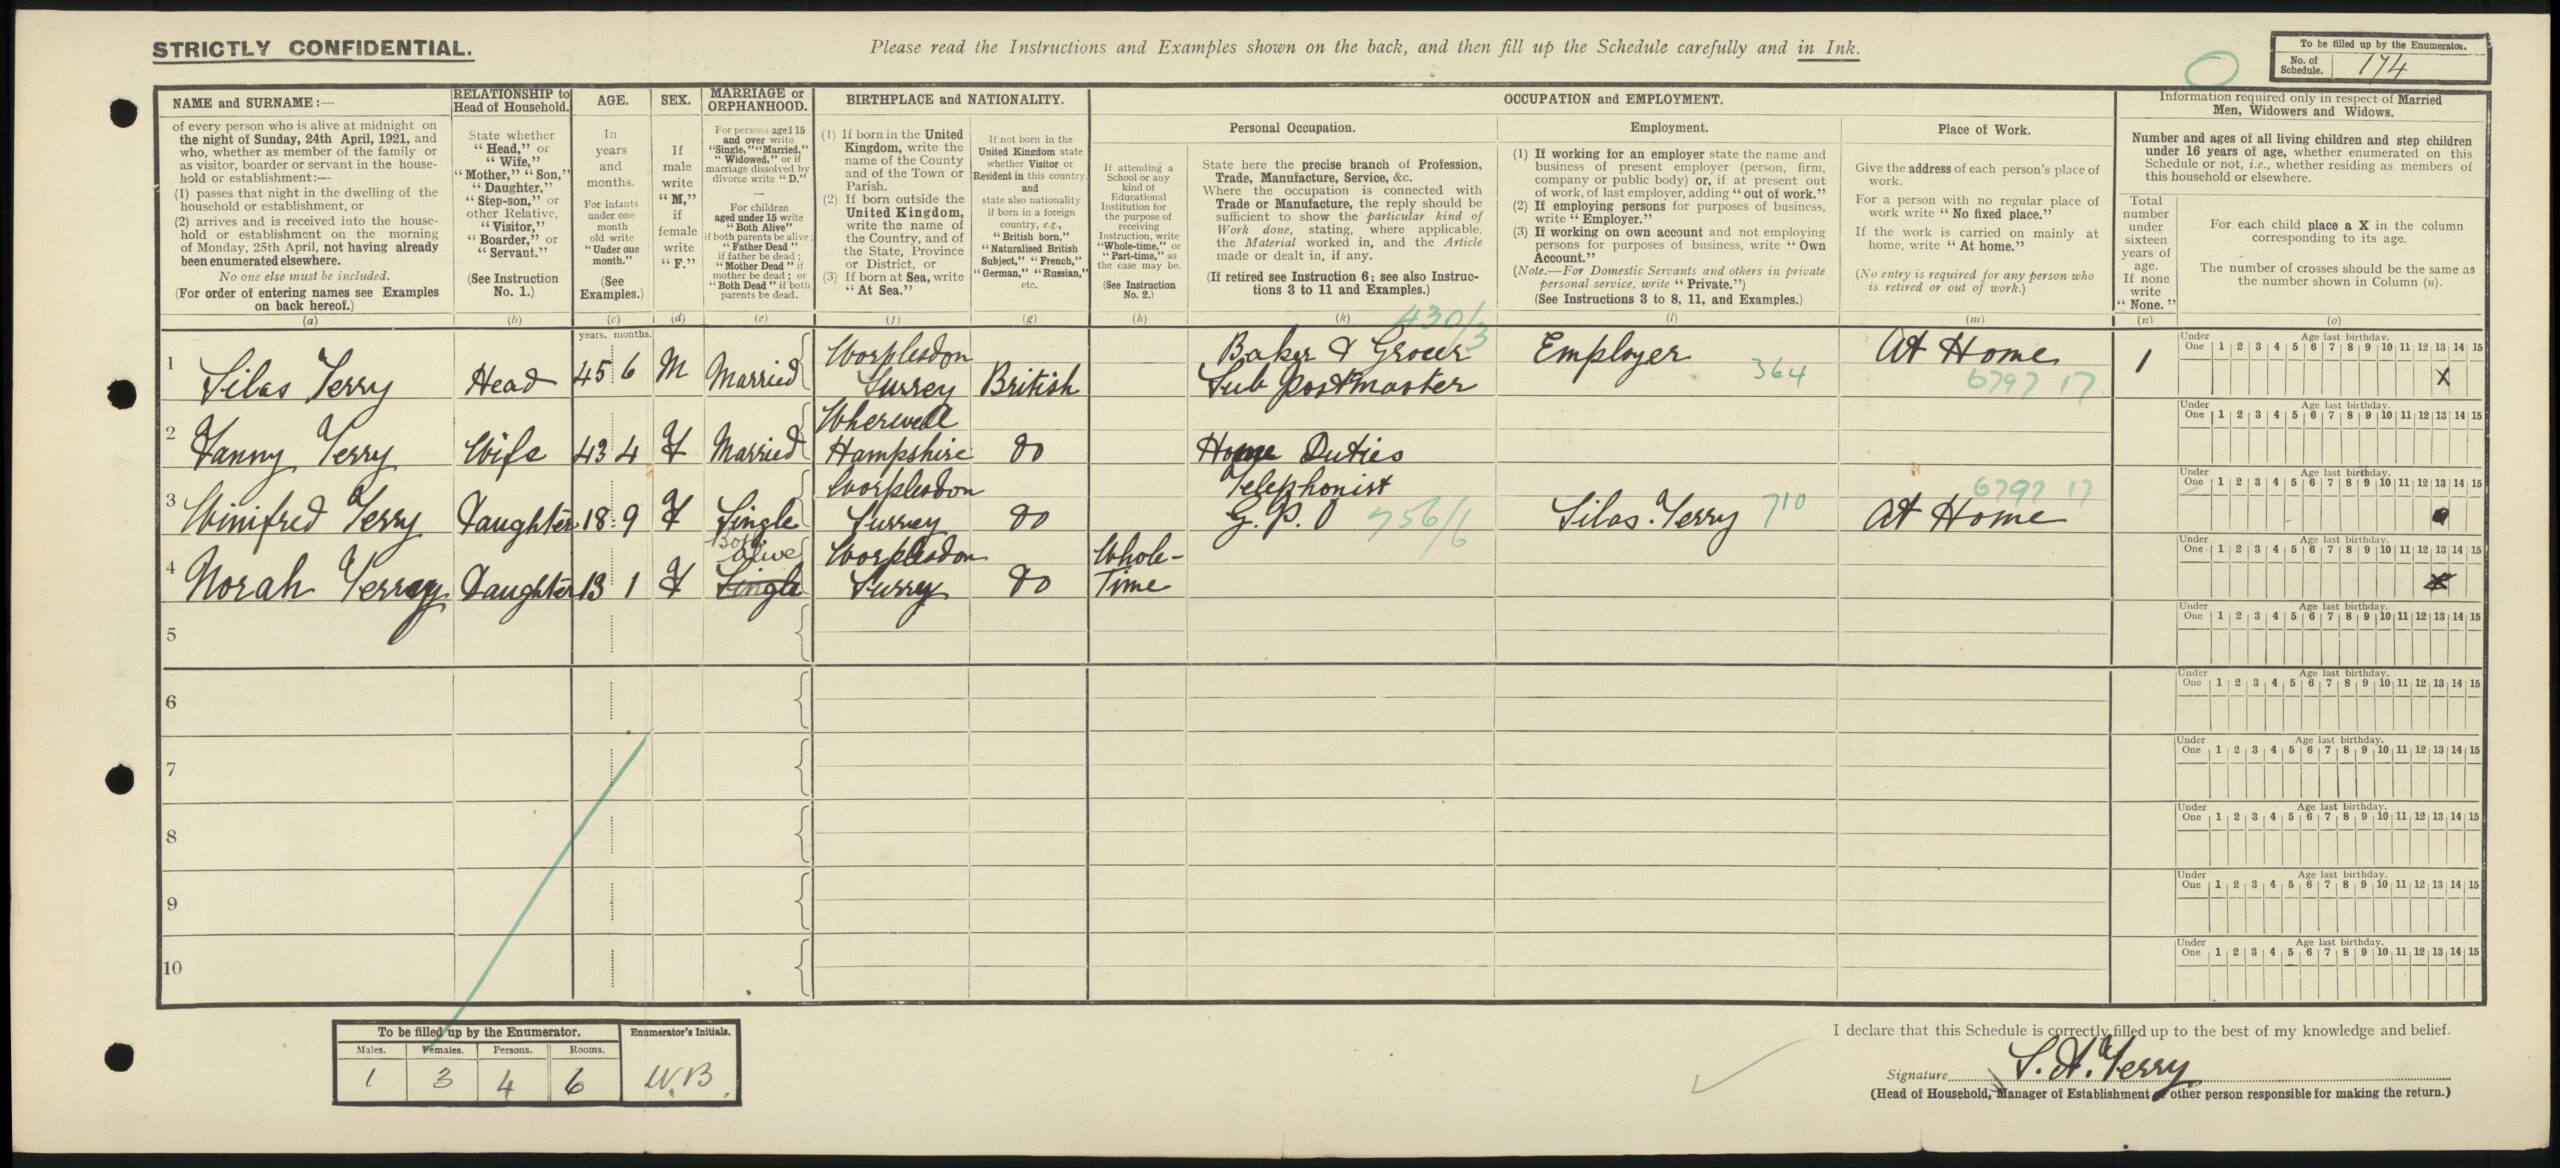 STRICTLY CONFIDENTIAL.
Please read the Instructions and Examples shown on the back, and then fill up the Schedule carefully and in Ink.
To be filled up by the Enumerator.
No. of Schedule. 174
NAME and SURNAME:—
of every person who is alive at midnight on
the night of Sunday, 24th April, 1921, and
who, whether as member of the family or
as visitor, boarder or servant in the house-
hold or establishment:—
(1) passes that night in the dwelling of the
household or establishment, or
(2) arrives and is received into the house-
hold or establishment on the morning
of Monday, 25th April, not having already
been enumerated elsewhere.
No one else must be included.
(For order of entering names see Examples
on back hereof.)
(a)
RELATIONSHIP to
Head of Household.
State whether
"Head," or
"Wife,"
"Mother," "Son,"
"Daughter,"
"Step-son," or
other Relative,
"Visitor,"
"Boarder," or
"Servant."
(See Instruction
No. 1.)
(b)
AGE.
In
years
and
months.
For infants
under one
month
old write
"Under one
month."
(See
Examples.)
(c)
years. months.
SEX.
If
male
write
"M,"
if
female
write
"F."
(d)
MARRIAGE or
ORPHANHOOD.
For persons aged 15
and over write
"Single," "Married,"
"Widowed," or if
marriage dissolved by
divorce write "D."
For children
aged under 15 write
"Both Alive"
if both parents be alive;
"Father Dead"
if father be dead;
"Mother Dead" if
mother be dead; or
"Both Dead" if both
parents be dead.
(e)
BIRTHPLACE and NATIONALITY.
(1) If born in the United
Kingdom, write the
name of the County
and of the Town or
Parish.
(2) If born outside the
United Kingdom,
write the name of
the Country, and of
the State, Province
or District, or
(3) If born at Sea, write
"At Sea."
(f)
If not born in the
United Kingdom state
whether Visitor or
Resident in this country,
and
state also nationality
if born in a foreign
country, e.g.,
"British born,"
"Naturalised British
Subject," "French,"
"German," "Russian,"
etc.
(g)
OCCUPATION and EMPLOYMENT.
If attending a
School or any
kind of
Educational
Institution for
the purpose of
receiving
Instruction, write
"Whole-time," or
"Part-time," as
the case may be.
(See Instruction
No. 2.)
(h)
Personal Occupation.
State here the precise branch of Profession,
Trade, Manufacture, Service, &c.
Where the occupation is connected with
Trade or Manufacture, the reply should be
sufficient to show the particular kind of
Work done, stating, where applicable,
the Material worked in, and the Article
made or dealt in, if any.
(If retired see Instruction 6; see also Instruc-
tions 3 to 11 and Examples.)
(k)
Employment.
(1) If working for an employer state the name and
business of present employer (person, firm,
company or public body) or, if at present out
of work, of last employer, adding "out of work."
(2) If employing persons for purposes of business,
write "Employer."
(3) If working on own account and not employing
persons for purposes of business, write "Own
Account."
(Note.—For Domestic Servants and others in private
personal service, write "Private.")
(See Instructions 3 to 8, 11, and Examples.)
(l)
Place of Work.
Give the address of each person's place of
work.
For a person with no regular place of
work write "No fixed place."
If the work is carried on mainly at
home, write "At home."
(No entry is required for any person who
is retired or out of work.)
(m)
Information required only in respect of Married
Men, Widowers and Widows.
Number and ages of all living children and step children
under 16 years of age, whether enumerated on this
Schedule or not, i.e., whether residing as members of
this household or elsewhere.
Total
number
under
sixteen
years of
age.
If none
write
"None."
(n)
For each child place a X in the column
corresponding to its age.
The number of crosses should be the same as
the number shown in Column (n).
(o)
1 Silas Terry Head 45 6 M Married Worplesdon Surrey British Baker & Grocer Sub Postmaster 430/3 Employer 364 At Home 6797 17 1 X
Under One Age last birthday. 1 2 3 4 5 6 7 8 9 10 11 12 13 14 15
2 Fanny Terry Wife 43 4 F Married Wherwell Hampshire do Home Duties
Under One Age last birthday. 1 2 3 4 5 6 7 8 9 10 11 12 13 14 15
3 Winifred Terry Daughter 18 9 F Single Worplesdon Surrey do Telephonist G.P.O 756/6 Silas Terry 710 At Home 6797 17
Under One Age last birthday. 1 2 3 4 5 6 7 8 9 10 11 12 13 14 15
4 Norah Terry Daughter 13 1 F Both alive Single Worplesdon Surrey do Whole-Time
Under One Age last birthday. 1 2 3 4 5 6 7 8 9 10 11 12 13 14 15
5
Under One Age last birthday. 1 2 3 4 5 6 7 8 9 10 11 12 13 14 15
6
Under One Age last birthday. 1 2 3 4 5 6 7 8 9 10 11 12 13 14 15
7
Under One Age last birthday. 1 2 3 4 5 6 7 8 9 10 11 12 13 14 15
8
Under One Age last birthday. 1 2 3 4 5 6 7 8 9 10 11 12 13 14 15
9
Under One Age last birthday. 1 2 3 4 5 6 7 8 9 10 11 12 13 14 15
10
Under One Age last birthday. 1 2 3 4 5 6 7 8 9 10 11 12 13 14 15
To be filled up by the Enumerator.
Males. Females. Persons. Rooms.
1 3 4 6
Enumerator's Initials.
W.B
I declare that this Schedule is correctly filled up to the best of my knowledge and belief.
Signature S. A. Terry
(Head of Household, Manager of Establishment or other person responsible for making the return.)